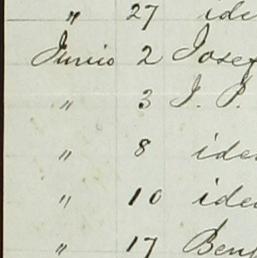 " 27 ide
Junio 2 Josef
" 3 J. P.
" 8 ide
" 10 ide
" 17 Benj